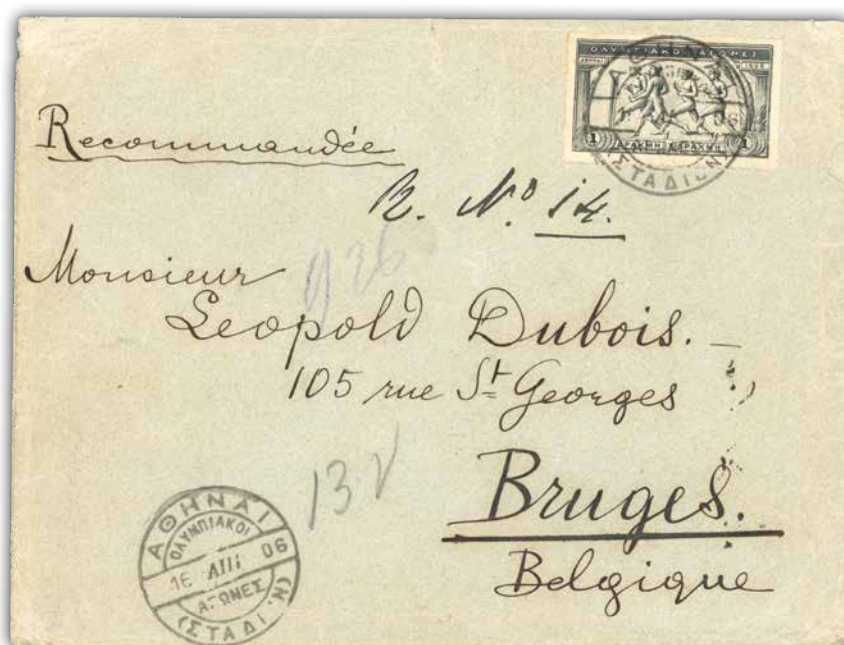 ΟΛΥΜΠΙΑΚΟΙ ΑΓΩΝΕΣ
1 ΔΡΑΧΜΗ 1
06
(ΣΤΑΔΙΟΝ)
Recommandée
R. Nº 14.
926
Monsieur
Leopold Dubois.
105 rue St Georges
13
Bruges.
Belgique
ΑΘΗΝΑΙ
ΟΛΥΜΠΙΑΚΟΙ
16 ΑΠ 06
ΑΓΩΝΕΣ
(ΣΤΑΔΙ.Ν)